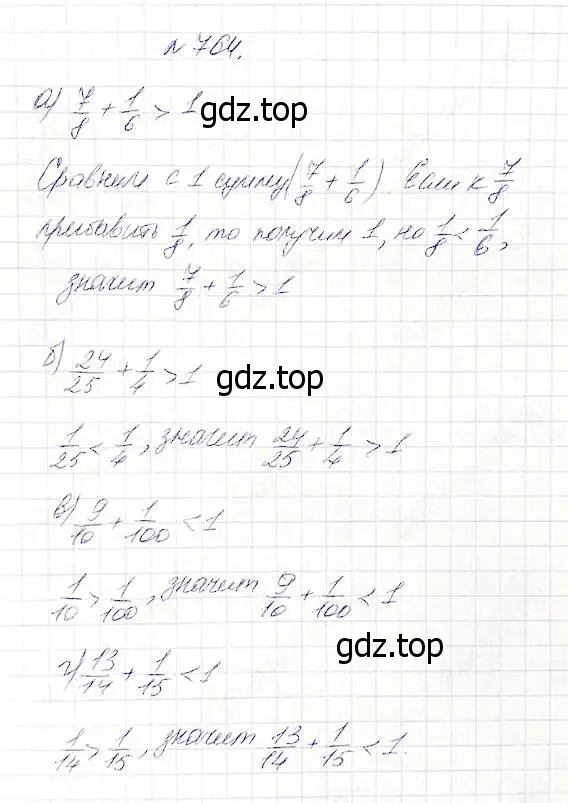 № 764.
а) 7/8 + 1/6 > 1
gdz.top
Сравним с 1 сумму (7/8 + 1/6). Если к 7/8
прибавить 1/8, то получим 1, но 1/8 < 1/6,
значит 7/8 + 1/6 > 1
б) 24/25 + 1/4 > 1
gdz.top
1/25 < 1/4, значит 24/25 + 1/4 > 1
в) 9/10 + 1/100 < 1
1/10 > 1/100, значит 9/10 + 1/100 < 1
г) 13/14 + 1/15 < 1
gdz.top
1/14 > 1/15, значит 13/14 + 1/15 < 1.